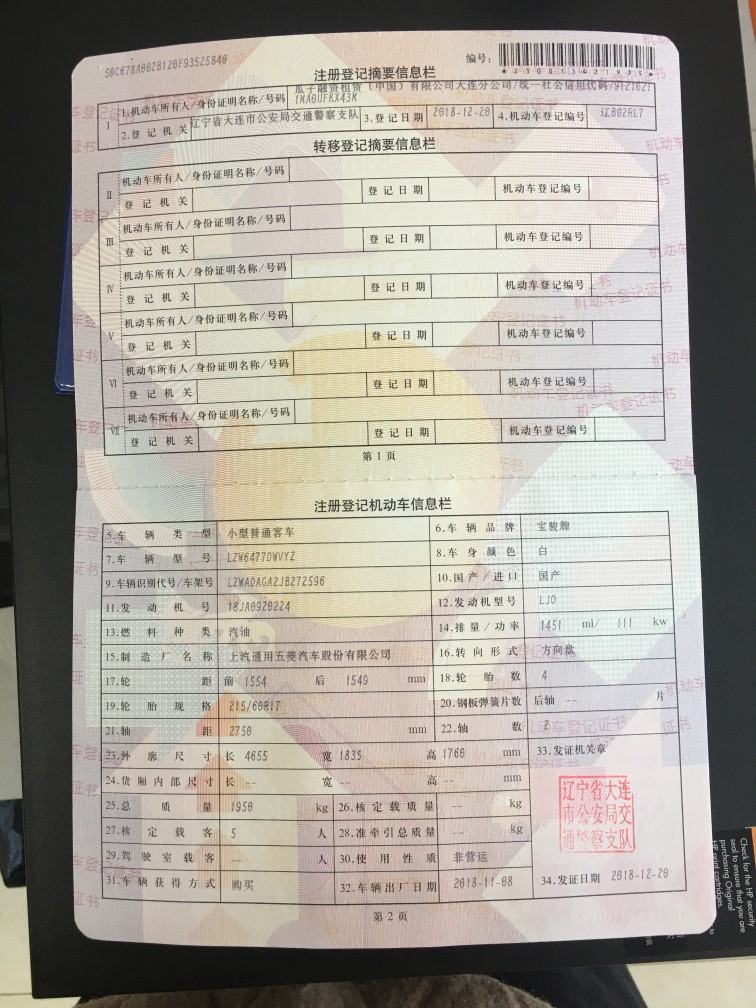 注册登记摘要信息栏
编号:
*210015421935*
1.机动车所有人/身份证明名称/号码 瓜子融资租赁(中国)有限公司大连分公司/统一社会信用代码/9121021
1MA0UFKX43K
I 2.登记机关 辽宁省大连市公安局交通警察支队 3.登记日期 2018-12-20 4.机动车登记编号 辽B02RL7
转移登记摘要信息栏
机动车所有人/身份证明名称/号码
II 登记机关 登记日期 机动车登记编号
机动车所有人/身份证明名称/号码
III 登记机关 登记日期 机动车登记编号
机动车所有人/身份证明名称/号码
IV 登记机关 登记日期 机动车登记编号
机动车所有人/身份证明名称/号码
V 登记机关 登记日期 机动车登记编号
机动车所有人/身份证明名称/号码
VI 登记机关 登记日期 机动车登记编号
机动车所有人/身份证明名称/号码
VII 登记机关 登记日期 机动车登记编号
第1页
注册登记机动车信息栏
5.车辆类型 小型普通客车 6.车辆品牌 宝骏牌
7.车辆型号 LZW6477DWVYZ 8.车身颜色 白
9.车辆识别代号/车架号 LZWADAGA2JB272596 10.国产/进口 国产
11.发动机号 18JA0920224 12.发动机型号 LJO
13.燃料种类 汽油 14.排量/功率 1451 ml/ 111 kw
15.制造厂名称 上汽通用五菱汽车股份有限公司 16.转向形式 方向盘
17.轮距 前 1554 后 1549 mm 18.轮胎数 4
19.轮胎规格 215/60R17 20.钢板弹簧片数 后轴 -- 片
21.轴距 2750 mm 22.轴数 2
23.外廓尺寸 长 4655 宽 1835 高 1760 mm 33.发证机关章
24.货厢内部尺寸 长 -- 宽 -- 高 -- mm
25.总质量 1950 kg 26.核定载质量 -- kg
辽宁省大连
市公安局交
通警察支队
27.核定载客 5 人 28.准牵引总质量 -- kg
29.驾驶室载客 -- 人 30.使用性质 非营运
31.车辆获得方式 购买 32.车辆出厂日期 2018-11-08 34.发证日期 2018-12-20
第2页
Check for the HP security
seal to ensure that you are
purchasing Original
HP print cartridges.